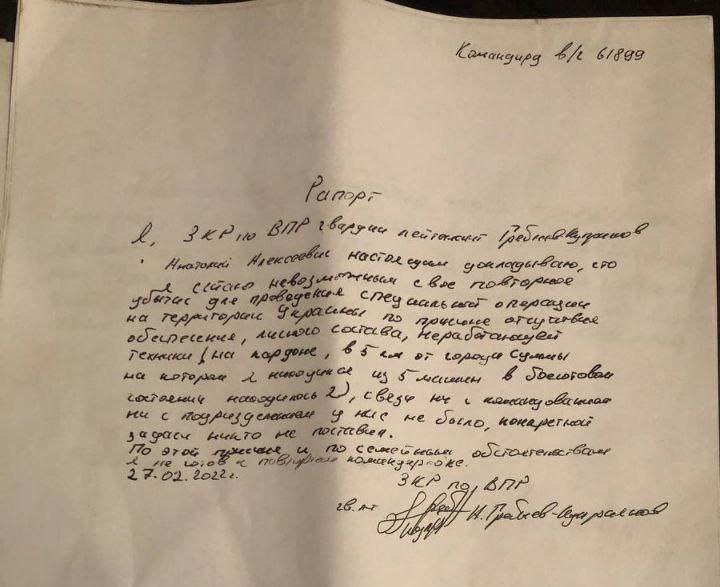 Командиру в/ч 61899
Рапорт
Я, ЗКР по ВПР гвардии лейтенант
Анатолий Алексеевич настоящим докладываю, что
я считаю невозможным свое повторное
убытие для проведения специальной операции
на территории Украины по причине отсутствия
обеспечения, личного состава, неработающей
техники (на кардоне, в 5 км от города Суммы
на котором я находился из 5 машин в боеготовом
состоянии находилось 2), связи ни с командованием
ни с подразделением у нас не было, конкретной
задачи никто не поставил.
По этой причине и по семейным обстоятельствам
я не готов к повторной командировке.
27.02.2022г.
ЗКР по ВПР
гв. л-т